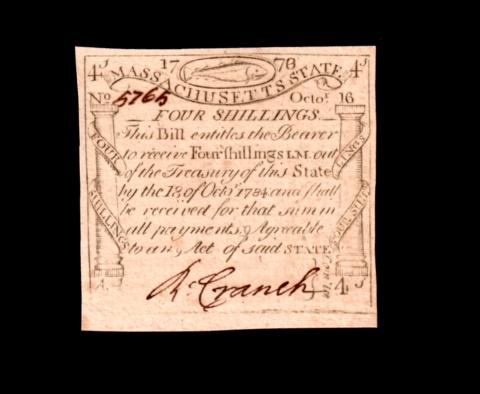 4s 17 78 4s
MASSACHUSETTS STATE
No 5765 Octor. 16
FOUR SHILLINGS
This Bill entitles the Bearer
to receive Four shillings L.M. out
of the Treasury of this State
by the 18, of Octr. 1784 and shall
be received for that sum in
all payments, Agreeable
to an, Act of said STATE
FOUR
SHILLINGS
FOUR SHIL
LINGS
Rd. Cranch
4s